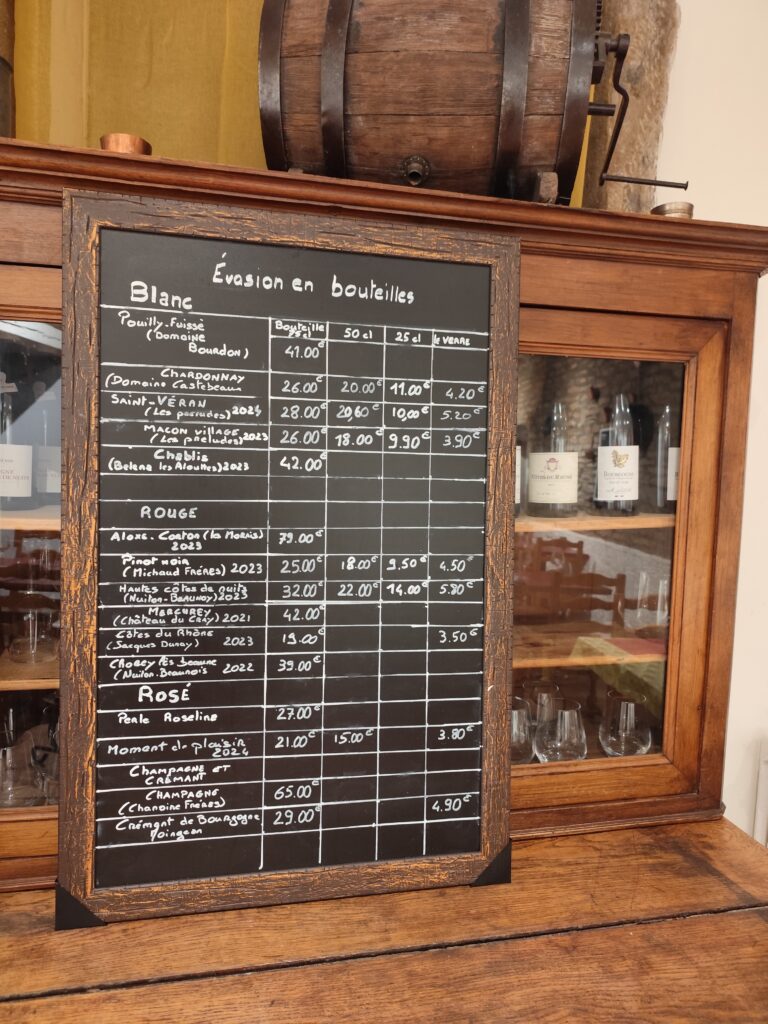 Évasion en bouteilles
Blanc
Bouteille 75 cl 50 cl 25 cl le VERRE
Pouilly-Fuissé
(Domaine
Bourdon) 41.00€
CHARDONNAY
(Domaine Castebeaux 26.00€ 20.00€ 11.00€ 4.20€
SAINT-VÉRAN
(Les préludes) 2024 28.00€ 20,60€ 10,00€ 5.20€
MACON VILLAGE
(Les préludes) 2023 26.00€ 18.00€ 9.90€ 3.90€
Chablis
(Belena les Alouettes) 2023 42.00€
ROUGE
Aloxe-Corton (les Morais)
2023 79.00€
Pinot noir
(Michaud Frères) 2023 25.00€ 18.00€ 9.50€ 4.50€
Hautes côtes de nuits
(Nuiton-BEAUNOY) 2023 32.00€ 22.00€ 14.00€ 5.80€
MERCUREY
(Château du CRAY) 2021 42.00€
Côtes du Rhône
(Jacques Dunay) 2023 19.00€ 3.50€
Chorey lès Beaune
(Nuiton-Beaunois 2022 39.00€
ROSÉ
Perle Roseline 27.00€
Moment de plaisir
2024 21.00€ 15.00€ 3.80€
CHAMPAGNE ET
CRÉMANT
CHAMPAGNE
(Chanoine Frères) 65.00€
Crémant de Bourgogne
Moingeon 29.00€ 4.90€
CÔTES-DU-RHÔNE
BOURGOGNE